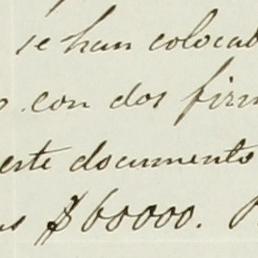 se han colocab
o con dos firm
este documento
us $60000.